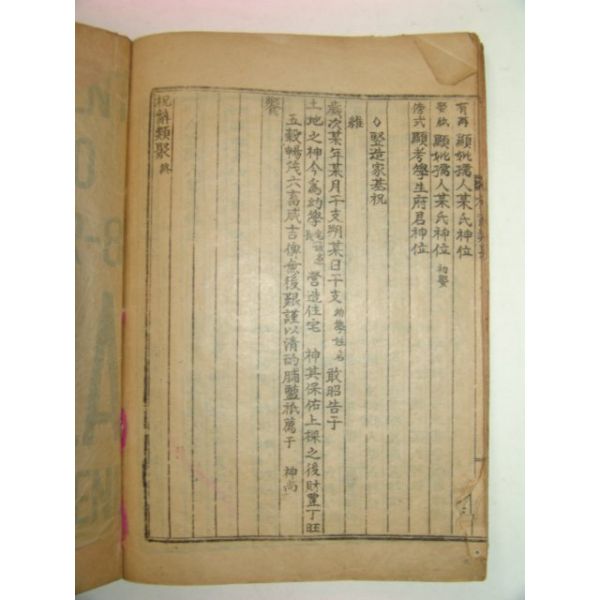 有再 顯妣孺人某氏神位
娶紙 顯妣孺人某氏神位 初娶
傍式 顯考學生府君神位
雜
◇竪造家基祝
歲次某年某月干支朔某日干支 幼學姓名 敢昭告于
土地之神今爲幼學 營造住宅 神其保佑上樑之後財豊丁旺
五穀暢茂六畜咸吉俾無後艱謹以清酌脯醢祗薦于 神尚
饗
祝辭類聚 終